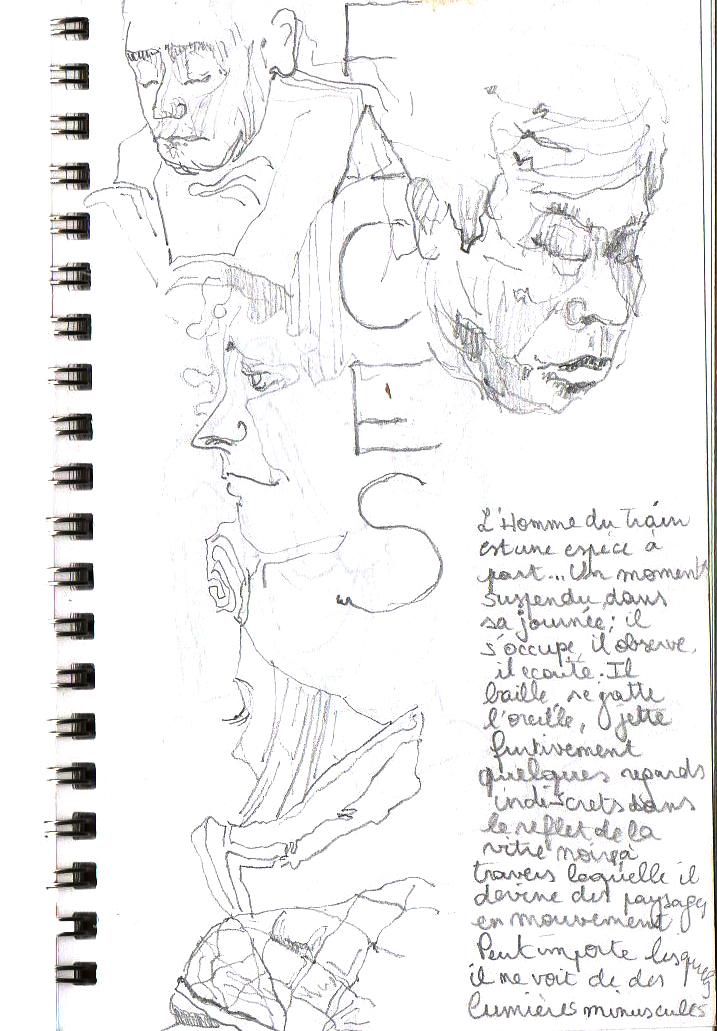 F
A
C
E
S
L'Homme du Train
est une espèce à
part... Un moment
suspendu, dans
sa journée; il
s'occupe, il observe,
il écoute. Il
baille, se gratte
l'oreille, jette
furtivement
quelques regards
indiscrets dans
le reflet de la
vitre noire à
travers laquelle il
devine des paysages
en mouvement
Peut importe lesquels
il ne voit de des
lumières minuscules